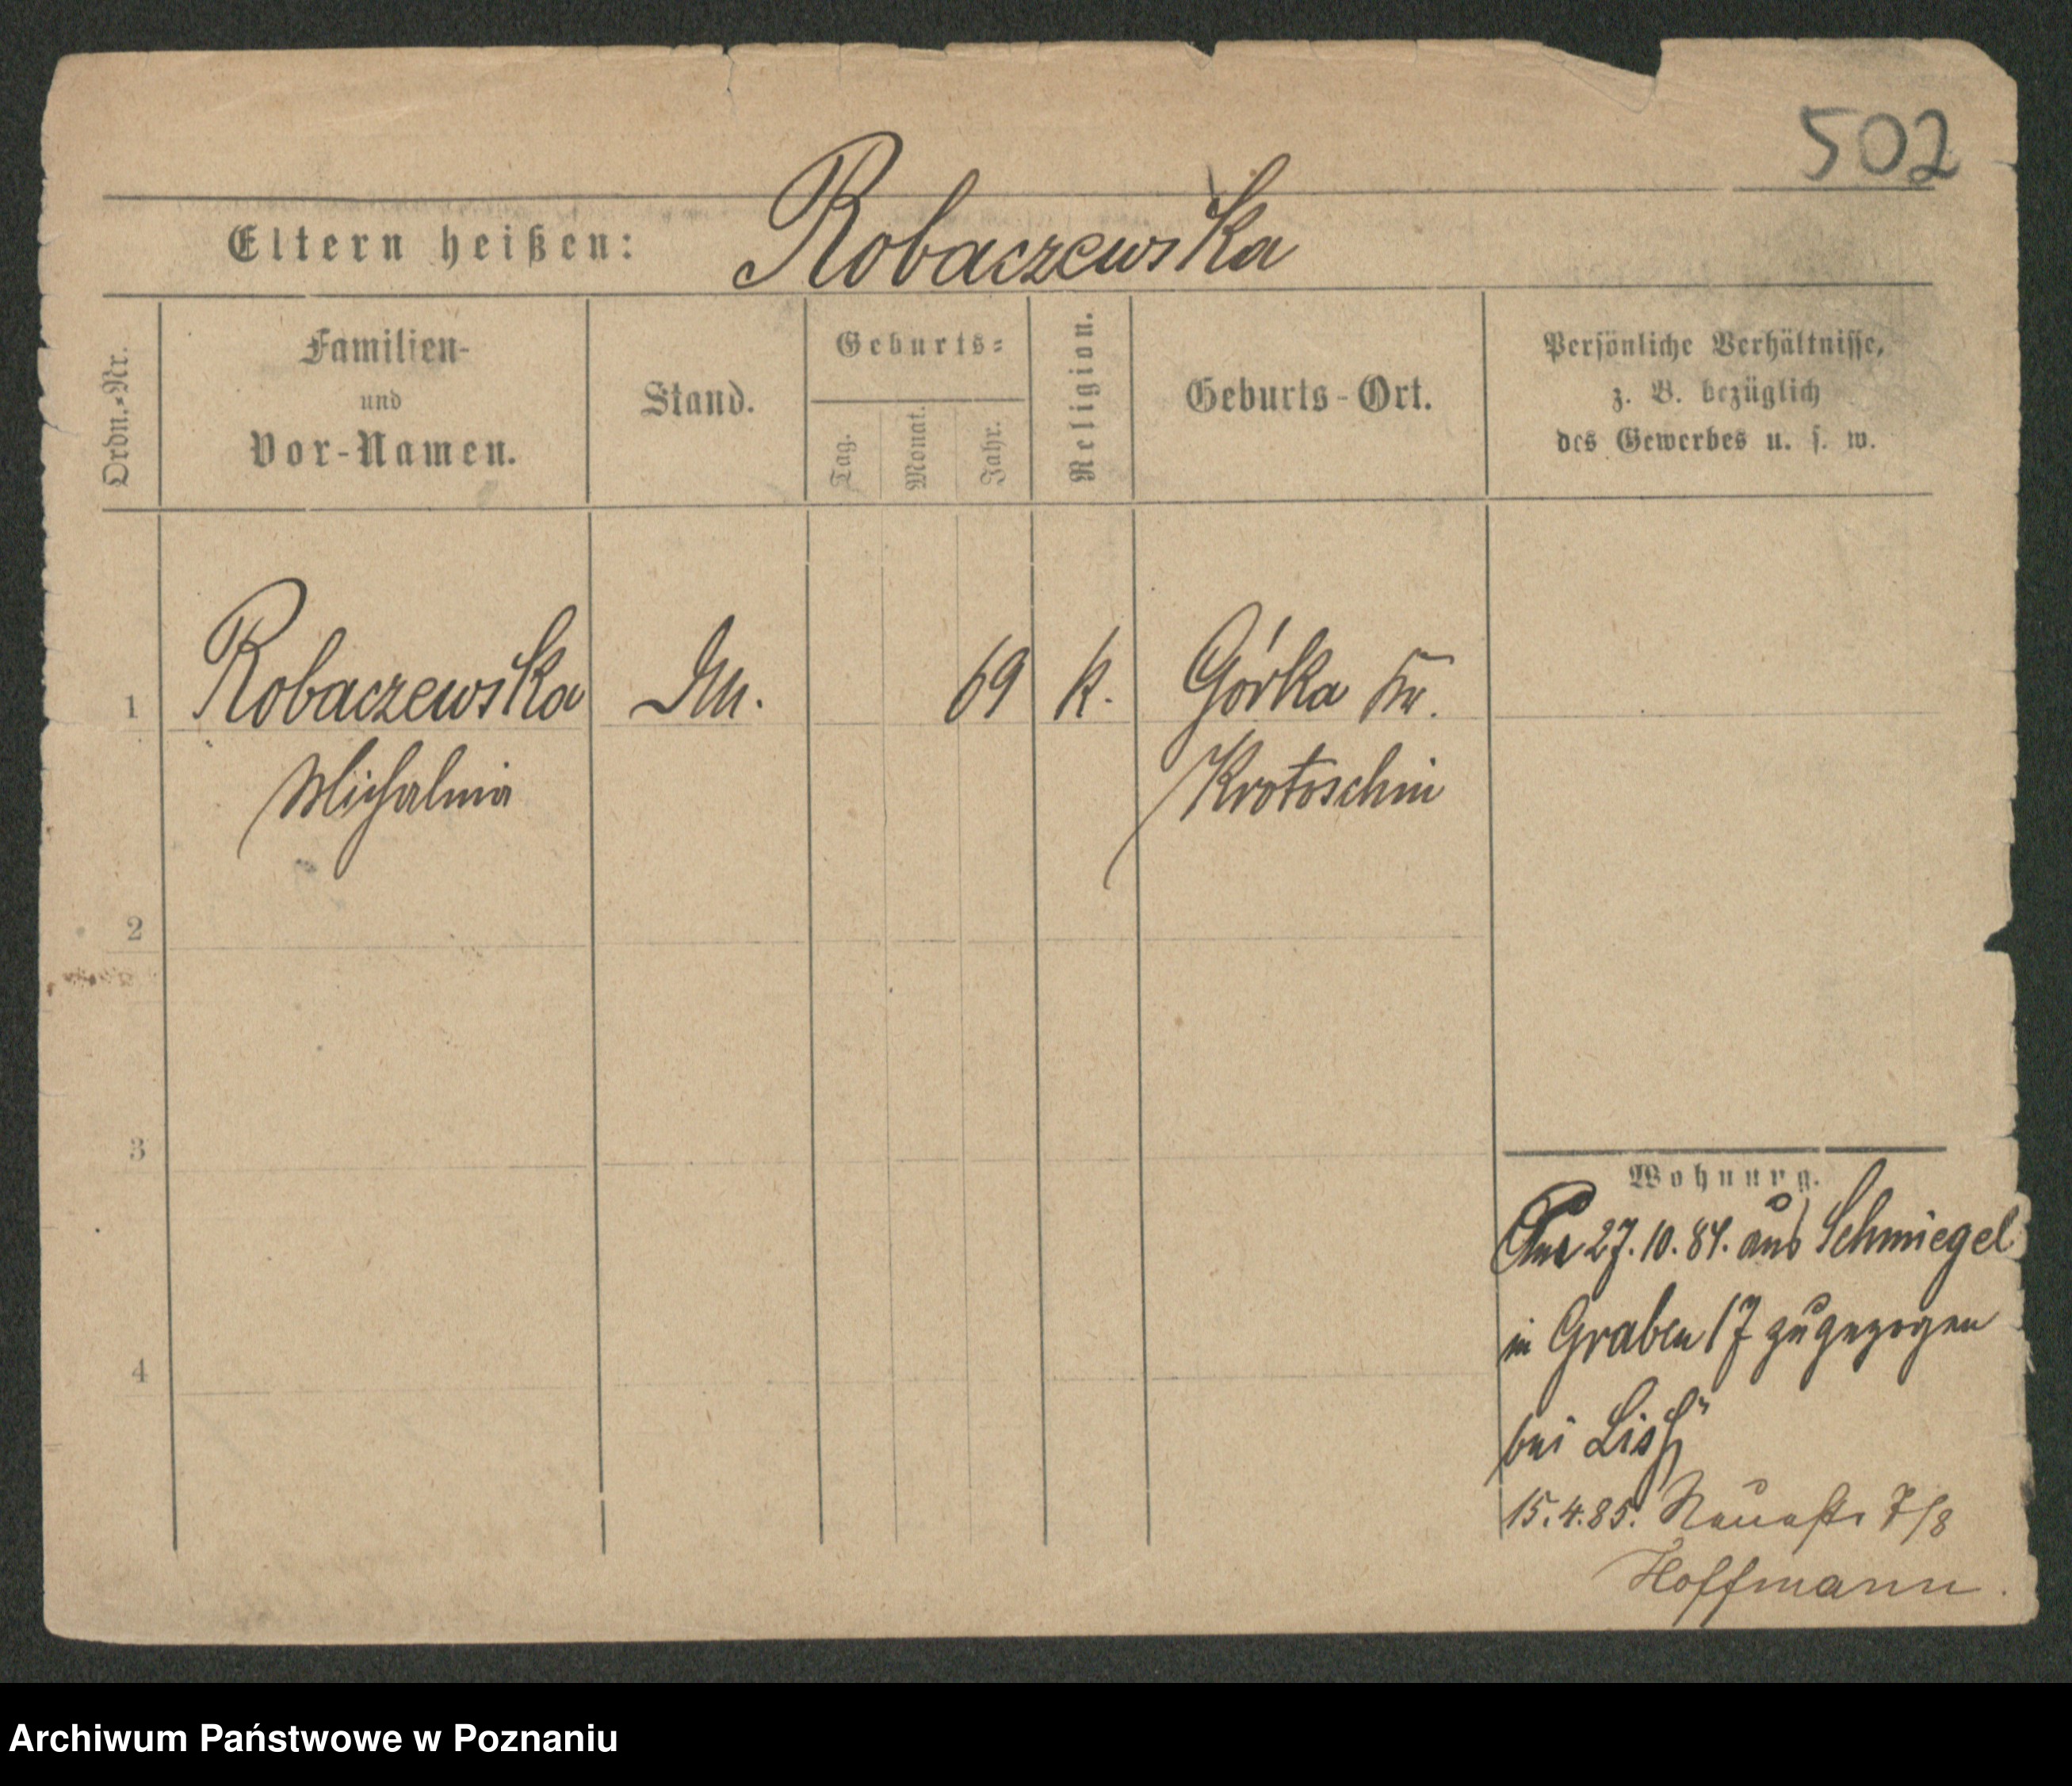 502
Eltern heißen: Robaczewska
Ordn.-Nr.
Familien-
und
Vor-Namen.
Stand.
Geburts-
Tag.
Monat.
Jahr.
Religion.
Geburts-Ort.
Persönliche Verhältnisse,
z. B. bezüglich
des Gewerbes u. s. w.
1 Robaczewska 69 k. Górka Kr.
Michalina Krotoschin
2
3
4
Wohnung.
27.10.84. aus Schmiegel
in Graben 17 zugezogen
bei
15.4.85. Neuestr 7/8
Hoffmann.
Archiwum Państwowe w Poznaniu